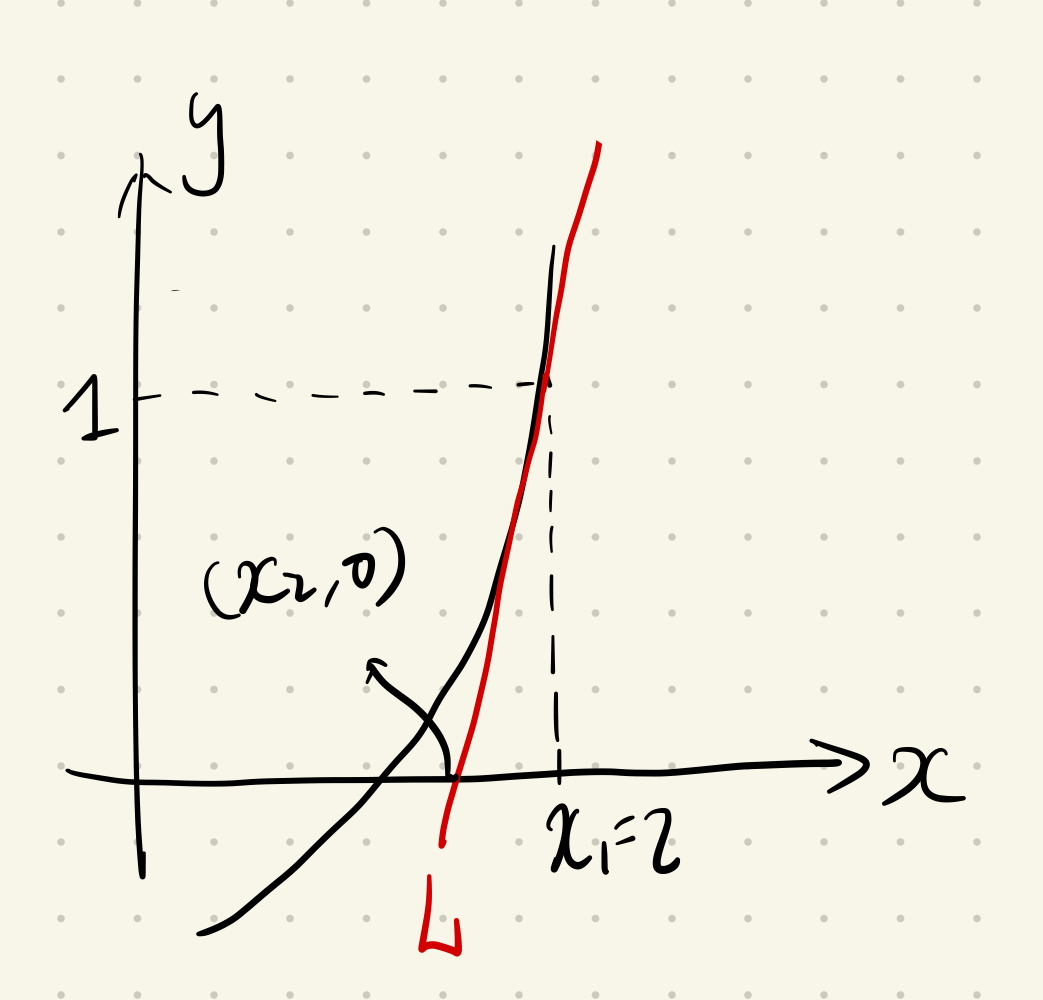 y
1
(x₂,0)
x
x₁=2
L